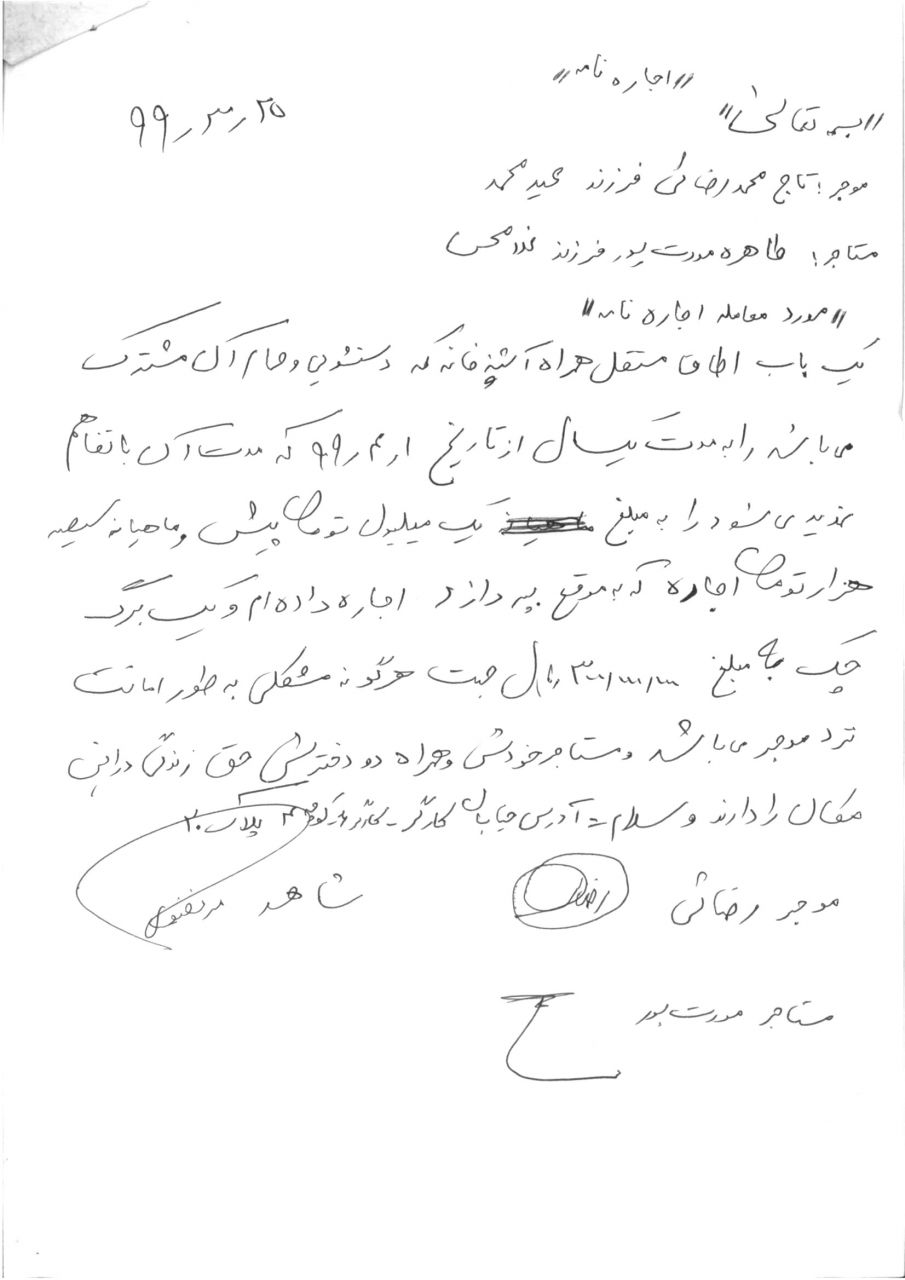 //اجاره نامه//
//بسمه تعالی//
۹۹٫۳٫۲۵
موجر: تاج محمد رضائی فرزند عیدمحمد
مستاجر: طاهره مورت پور فرزند غلامحسن
//مورد معامله اجاره نامه//
یک باب اطاق مستقل همراه آشپزخانه که دستشویی و حمام آن مشترک
می باشد را به مدت یکسال از تاریخ ۹۹٫۴٫۱ که مدت آن با تفاهم
تمدید می شود را به مبلغ یک میلیون تومان پیش و ماهیانه سیصد
هزار تومان اجاره که به موقع بپردازد اجاره داده ام و یک برگ
چک به مبلغ ۳۰۰/۰۰۰/۰۰۰ ریال جهت هرگونه مشکلی به طور امانت
نزد موجر می باشد و مستاجر خودش و همراه دو دخترش حق زندگی در این
مکان را دارند وسلام - آدرس خیابان کارگر - کارگر کوچه پلاک ۲۰
موجر رضائی
شاهد
مستاجر مورت پور